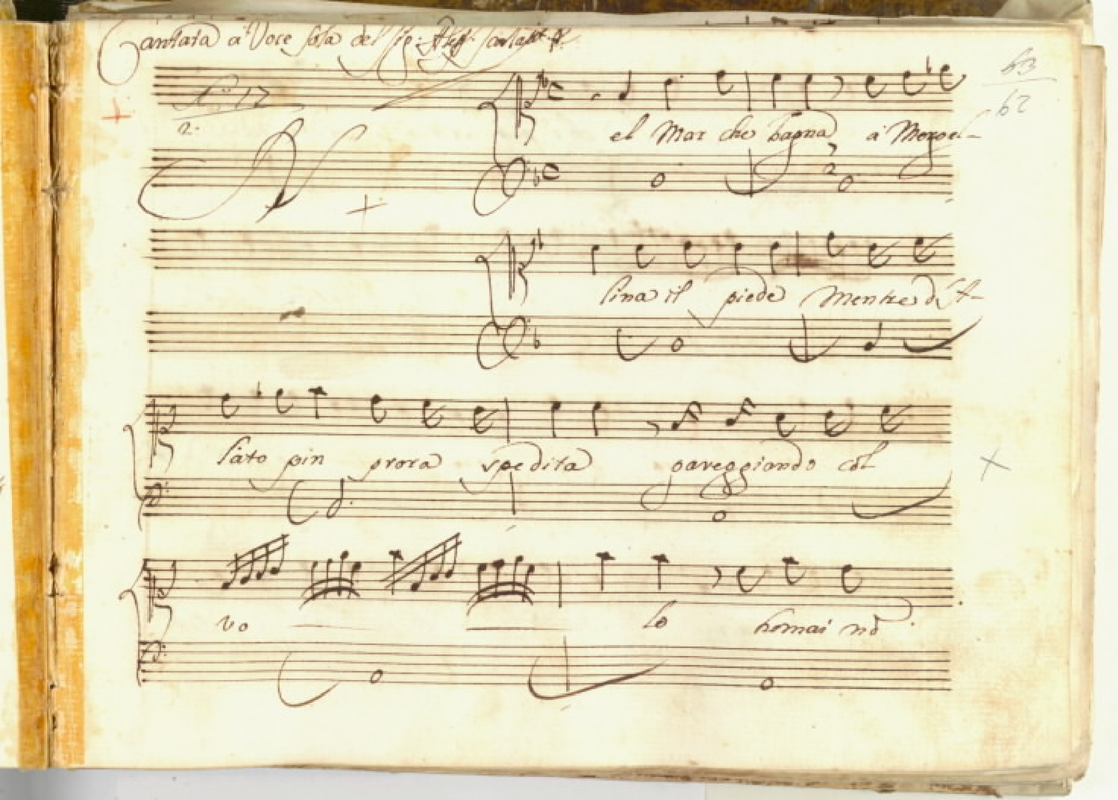 Cantata a Voce sola del Sig: Aless. Scarlatti
No. 12
63
62
2.
N
el Mar che bagna a Mergel-
lina il piede Mentre d'A-
lato pin prora spedita gareggiando col
vo lo homai nõ